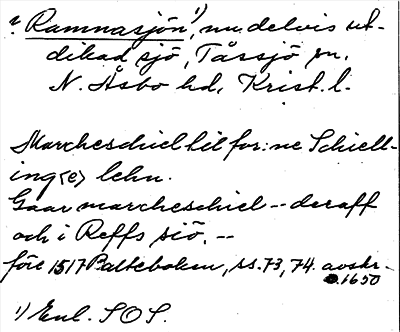 ? Ramnasjön¹⁾, nu delvis ut-
dikad sjö, Tåssjö sn,
N. Åsbo hd, Krist. l.
Marcheschiel til for:ne Schiell-
ing<e> lehn.
Gaar marcheschiel -- deraff
och i Reffs siö. --
före 1517 Palteboken, ss. 73, 74. avskr.
o. 1650
¹⁾ Enl. SOS.